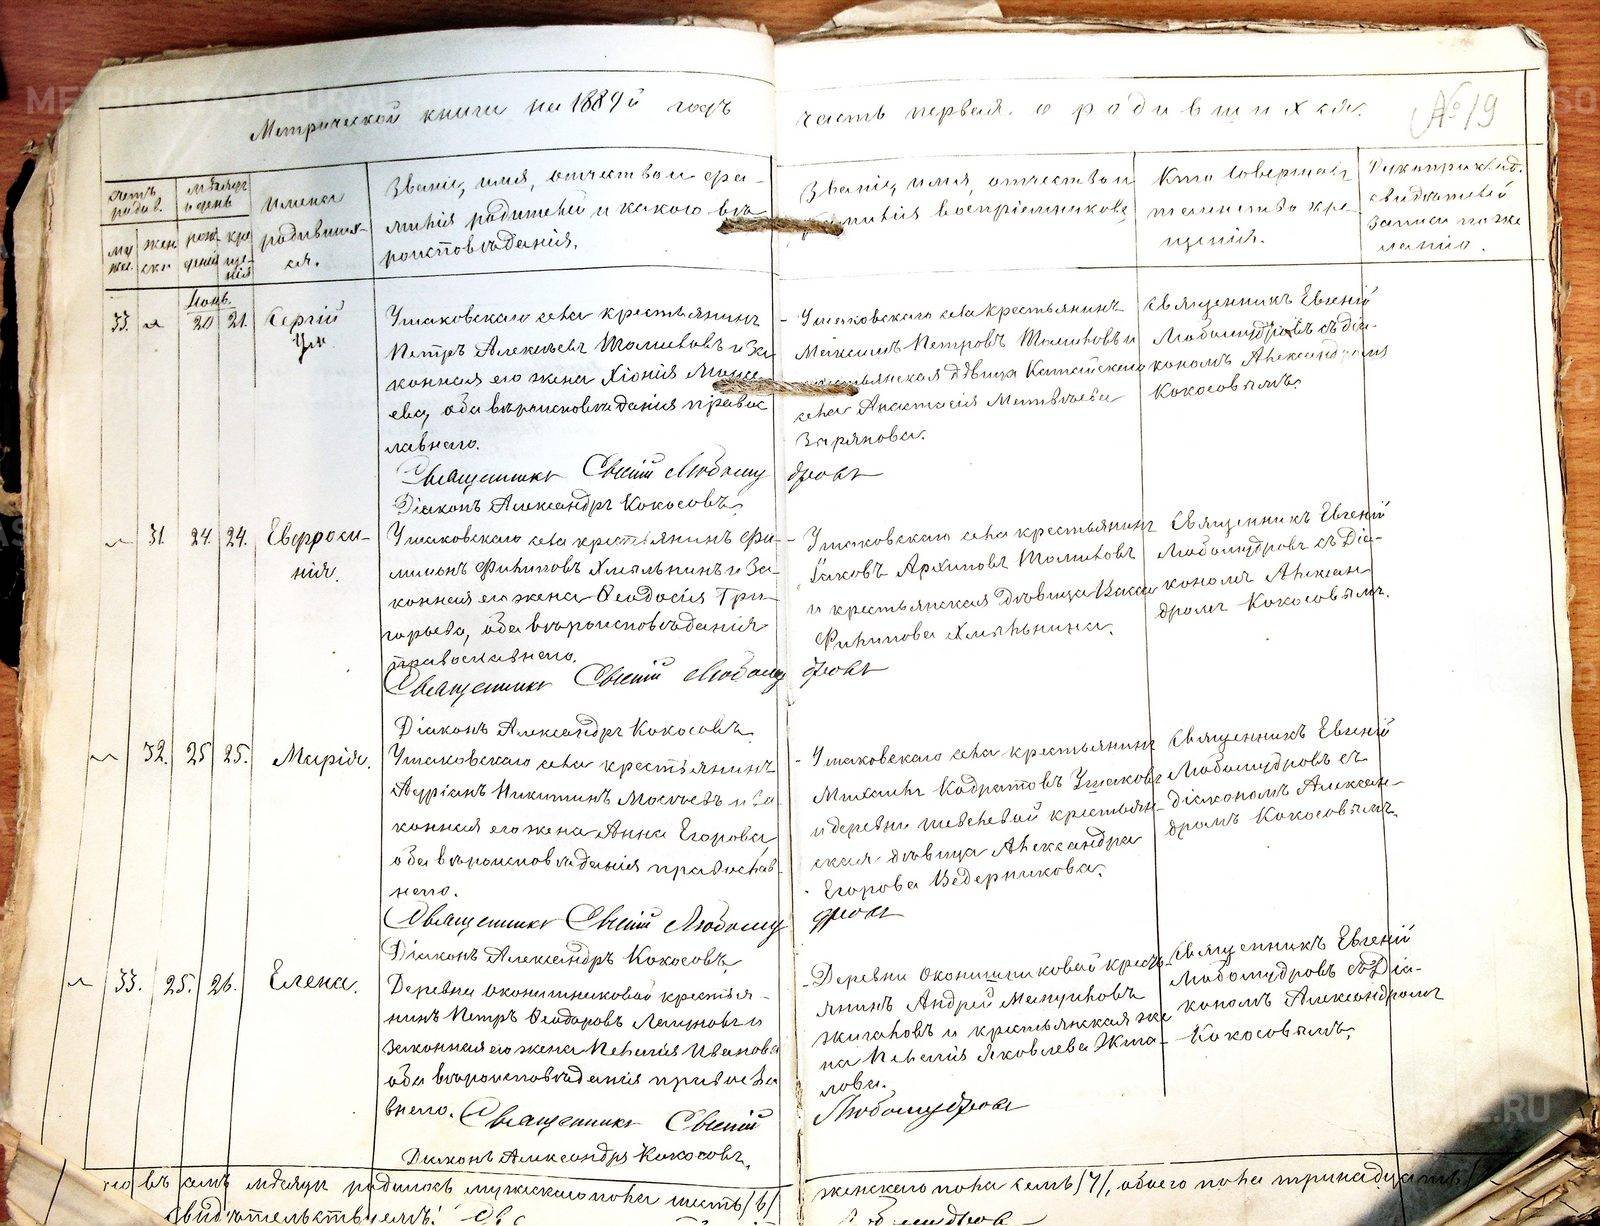 Метрической книги на 1889й годъ
часть первая о родившихся.
№ 19
Счетъ родив.
муже.
женски
мѣсяцъ и день
рождения
крещенія
Имена родившихся.
Званіе, имя, отчество и фамилія родителей и какого вѣроисповѣданія.
Званіе, имя, отчество и фамилія воспріемниковъ
Кто совершалъ таинство крещенія.
Рукоприклад. свидѣтелей записи по желанію.
Іюнь.
33. 20 21. Сергій
Ушаковскаго села крестьянинъ
Петръ Алексѣевъ и за
конная его жена Хіонія Моисе
ева, оба вѣроисповѣданія правос
лавнаго.
Священникъ Евгеній Любомудровъ
Діаконъ Александръ Кокосовъ.
- Ушаковскаго села крестьянинъ
Максимъ Петровъ и
крестьянская дѣвица Катайскаго
села Анастасія Матвѣева
Зырянова.
Священникъ Евгеній
Любомудровъ съ діа-
кономъ Александромъ
Кокосовымъ.
31. 24. 24. Евфроси-
нія.
Ушаковскаго села крестьянинъ Фи-
лимонъ Филиповъ Хмѣльнинъ и за
конная его жена Ѳеодосія Гри-
горьева, оба вѣроисповѣданія
православнаго.
Священникъ Евгеній Любомудровъ
Діаконъ Александръ Кокосовъ.
- Ушаковскаго села крестьянинъ
Іаковъ Архиповъ
и крестьянская дѣвица Васса
Филипова Хмѣльнина.
Священникъ Евгеній
Любомудровъ съ Діа-
кономъ Алексан
дромъ Кокосовымъ.
32. 25 25. Марія.
Ушаковскаго села крестьянинъ
Адріанъ Никитинъ и за-
конная его жена Анна Егорова,
оба вѣроисповѣданія православ-
наго.
Священникъ Евгеній Любомудровъ
Діаконъ Александръ Кокосовъ.
- Ушаковскаго села крестьянинъ
Михаилъ Кодратовъ Ушаковъ
и деревни крестьян-
ская дѣвица Александра
Егорова Ведерникова.
Священникъ Евгеній
Любомудровъ съ
діакономъ Алексан-
дромъ Кокосовымъ.
33. 25. 26. Елена.
Деревни Оконишниковой крестья-
нинъ Петръ Ѳеодоровъ и
законная его жена Пелагія Иванова
оба вѣроисповѣданія правосла
внаго. Священникъ Евгеній
Діаконъ Александръ Кокосовъ.
- Деревни Оконишниковой кресть-
янинъ Андрей
Жигаловъ и крестьянская же
на Пелагія Яковлева Жига-
лова.
Любомудровъ
Священникъ Евгеній
Любомудровъ съ Діа-
кономъ Александромъ
Кокосовымъ.
въ семъ мѣсяцѣ родилось мужескаго пола шесть /6/
женскаго пола семь /7/, обоего пола тринадцать
свидѣтельствуемъ: